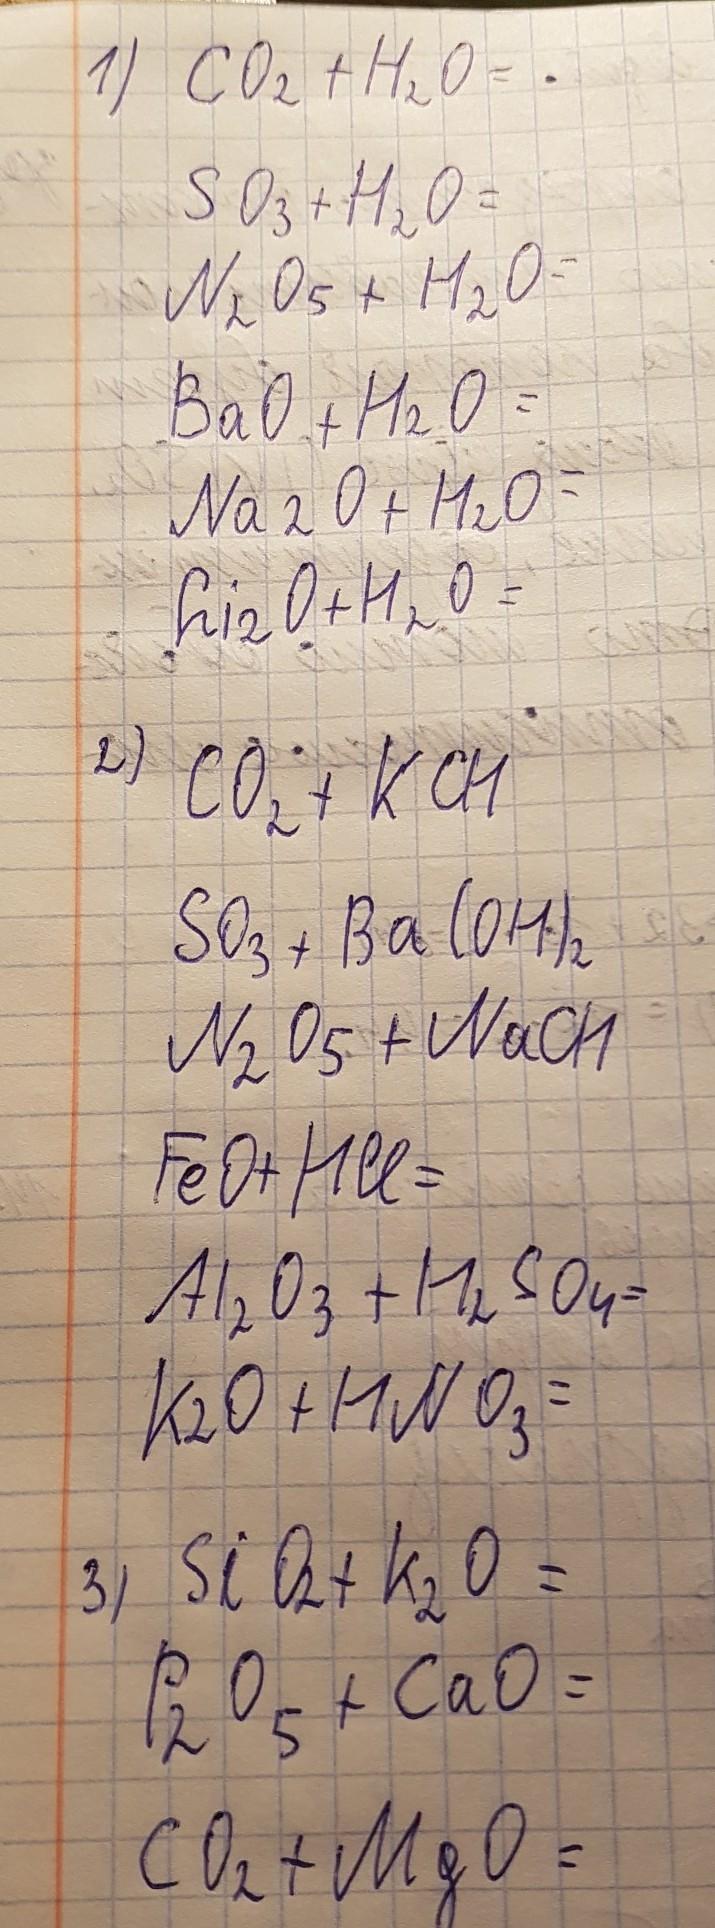 1) CO₂ + H₂O = .
SO₃ + H₂O =
N₂O₅ + H₂O =
BaO + H₂O =
Na₂O + H₂O =
Li₂O + H₂O =
2) CO₂ + KOH
SO₃ + Ba(OH)₂
N₂O₅ + NaOH
FeO + HCl =
Al₂O₃ + H₂SO₄ =
K₂O + HNO₃ =
3) SiO₂ + K₂O =
P₂O₅ + CaO =
CO₂ + MgO =